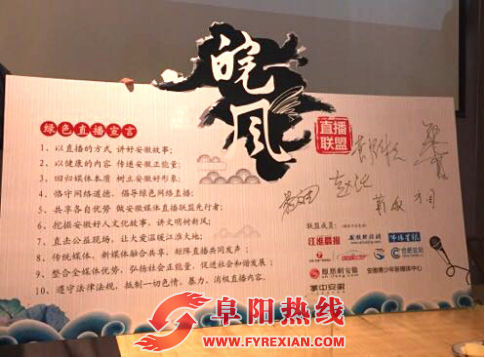 皖风
直播
联盟
绿色直播宣言
1、以直播的方式 讲好安徽故事；
2、以健康的内容 传递安徽正能量；
3、回归媒体本质 树立安徽好形象；
4、恪守网络道德，倡导绿色网络直播；
5、共享各自优势 做安徽媒体直播联盟先行者；
6、挖掘安徽好人文化故事，讲文明树新风；
7、直击公益现场，让大爱温暖江淮大地；
8、传统媒体、新媒体融合共享，矩阵直播共同发声；
9、整合全媒体优势，弘扬社会正能量，促进社会和谐发展；
10、遵守法律法规，抵制一切色情、暴力、消极直播内容。
联盟成员：
江淮晨报
凤凰网安徽
安徽青少年新媒体中心
掌中安徽
阜阳热线
WWW.FYREXIAN.COM